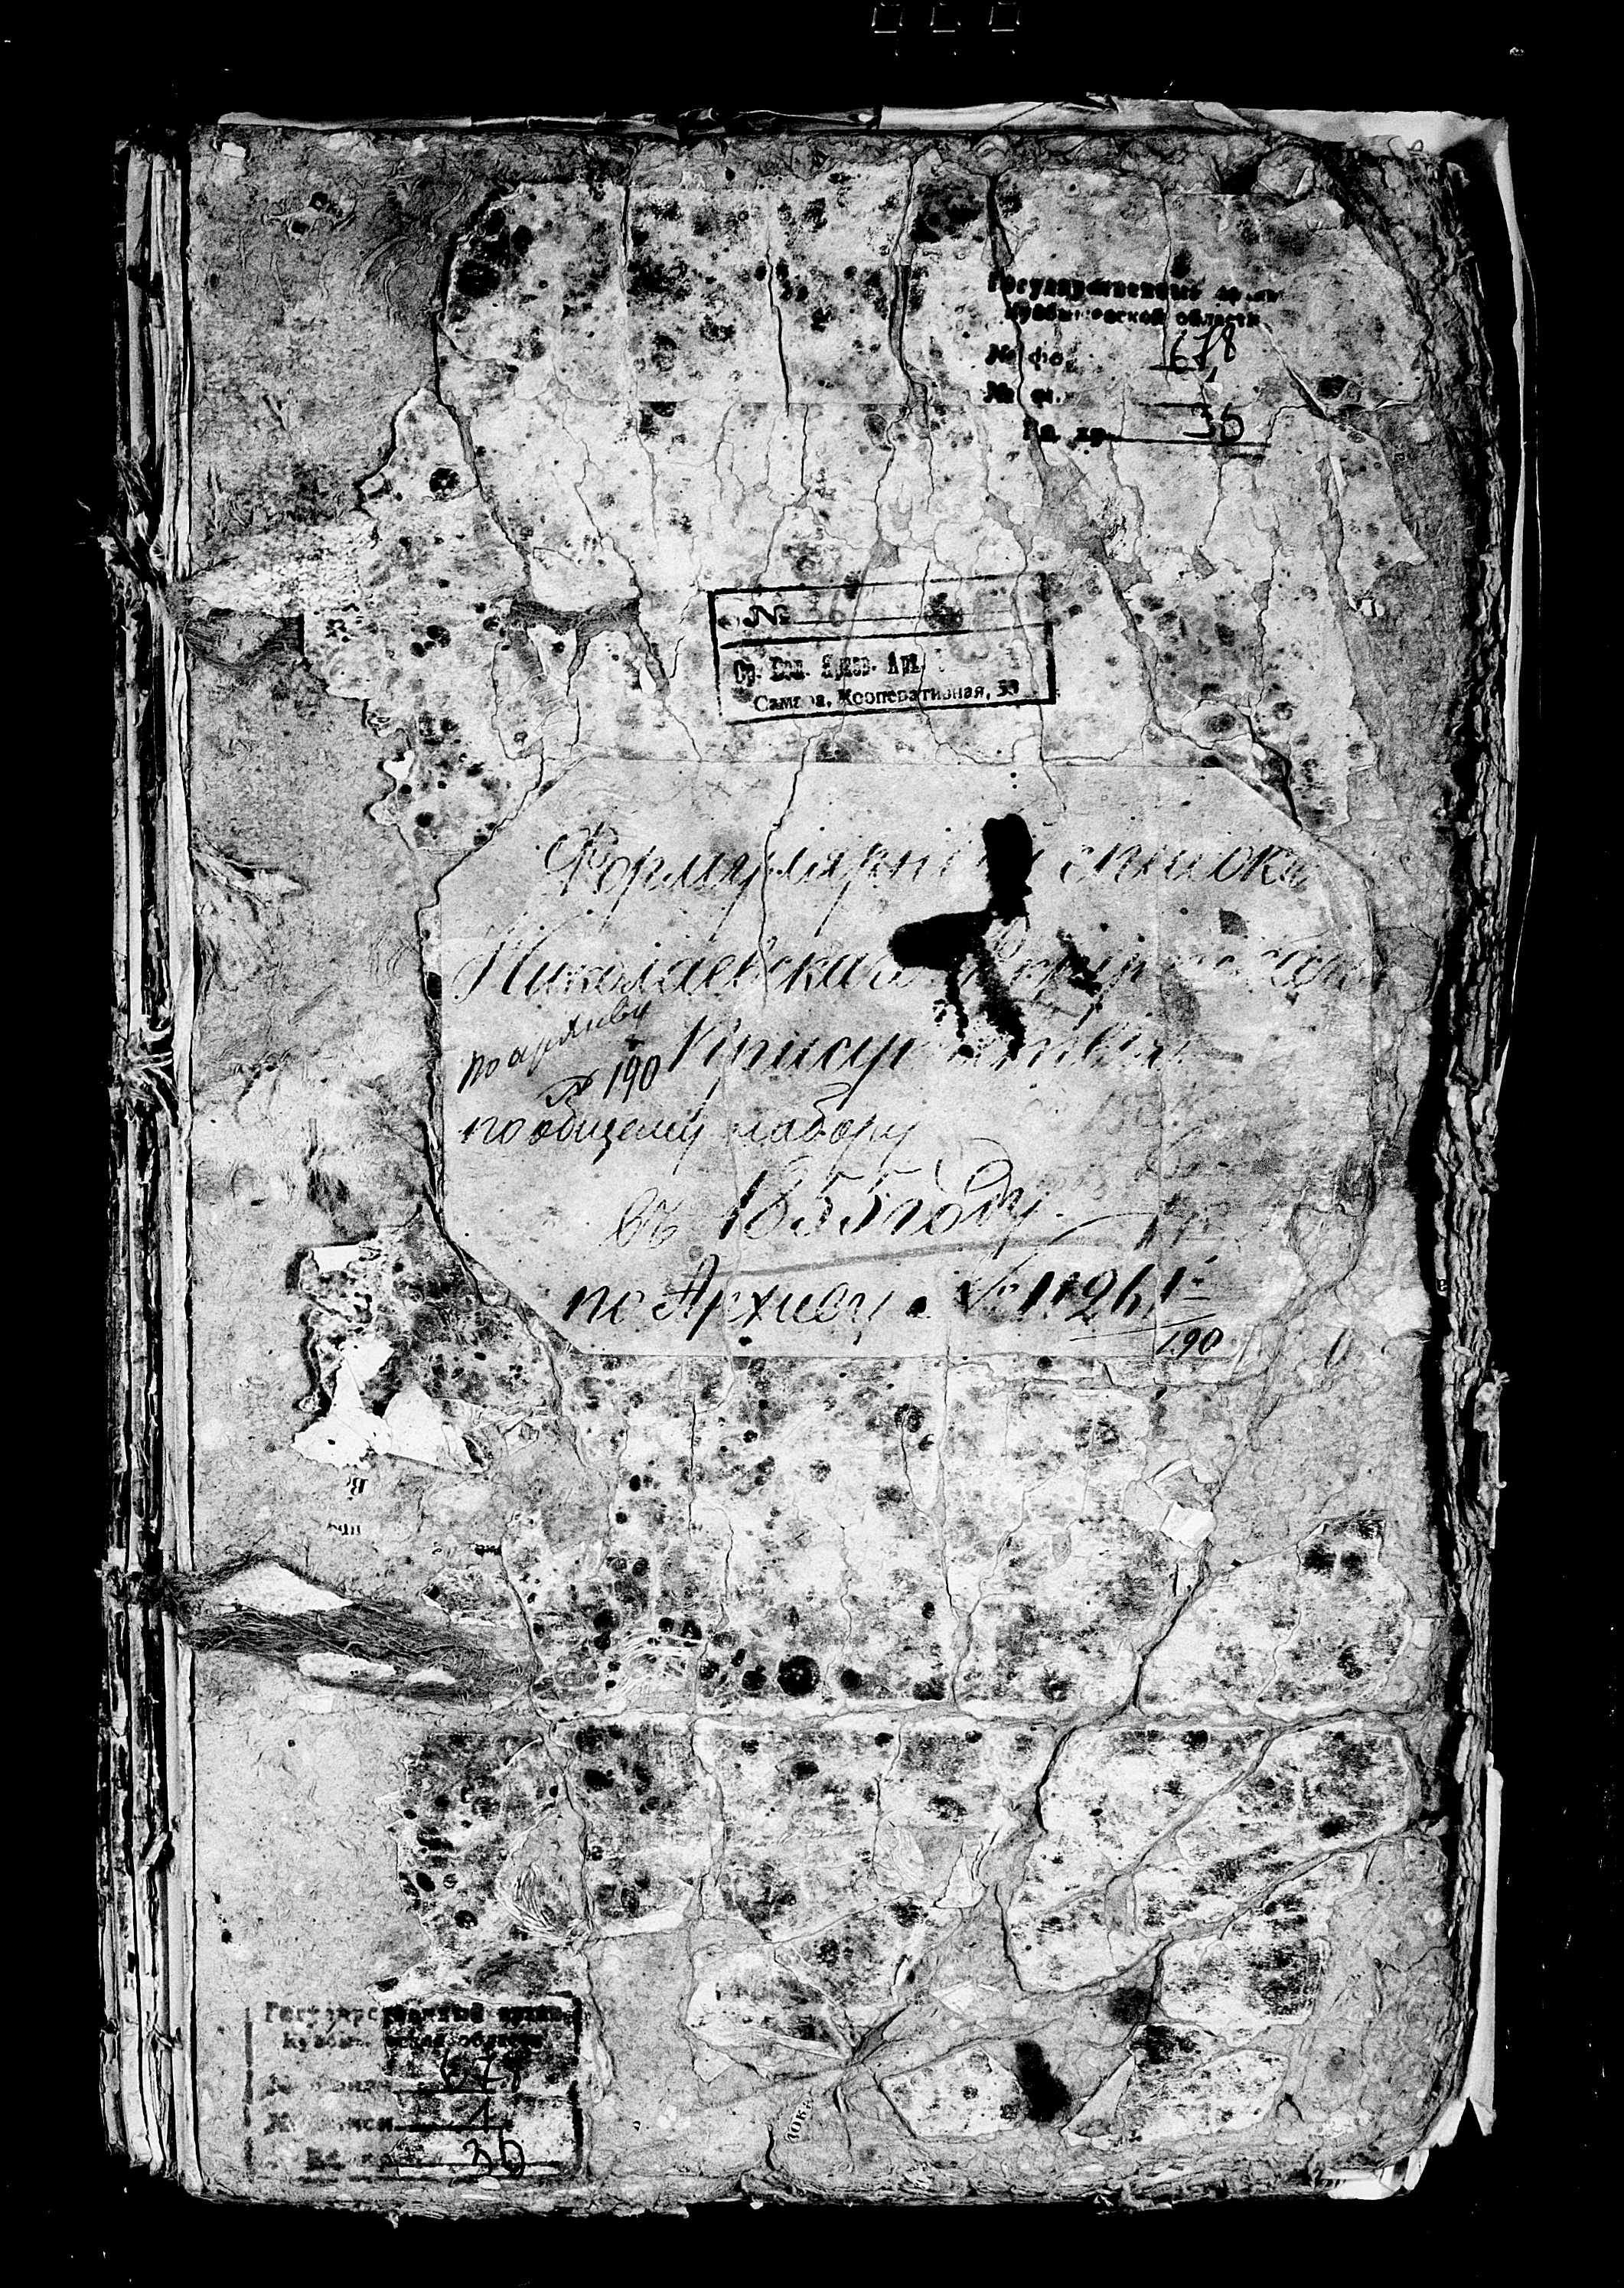 Государственный архив
Куйбышевской области
№ фо. 678
№ оп. 1
Ед. хр. 36
№ 36
Ср. Вол. Краев. Арх.
Самара, Кооперативная, 53
Формулярный списокъ
Николаевскаго Рекрутскаго
Присутствія
по архиву
№ 190
по общему набору
въ 1855 году.
по Архиву № 11261
190
Государственный архив
Куйбышевской области
№ фонда 678
№ описи 1
Ед. хр. 36